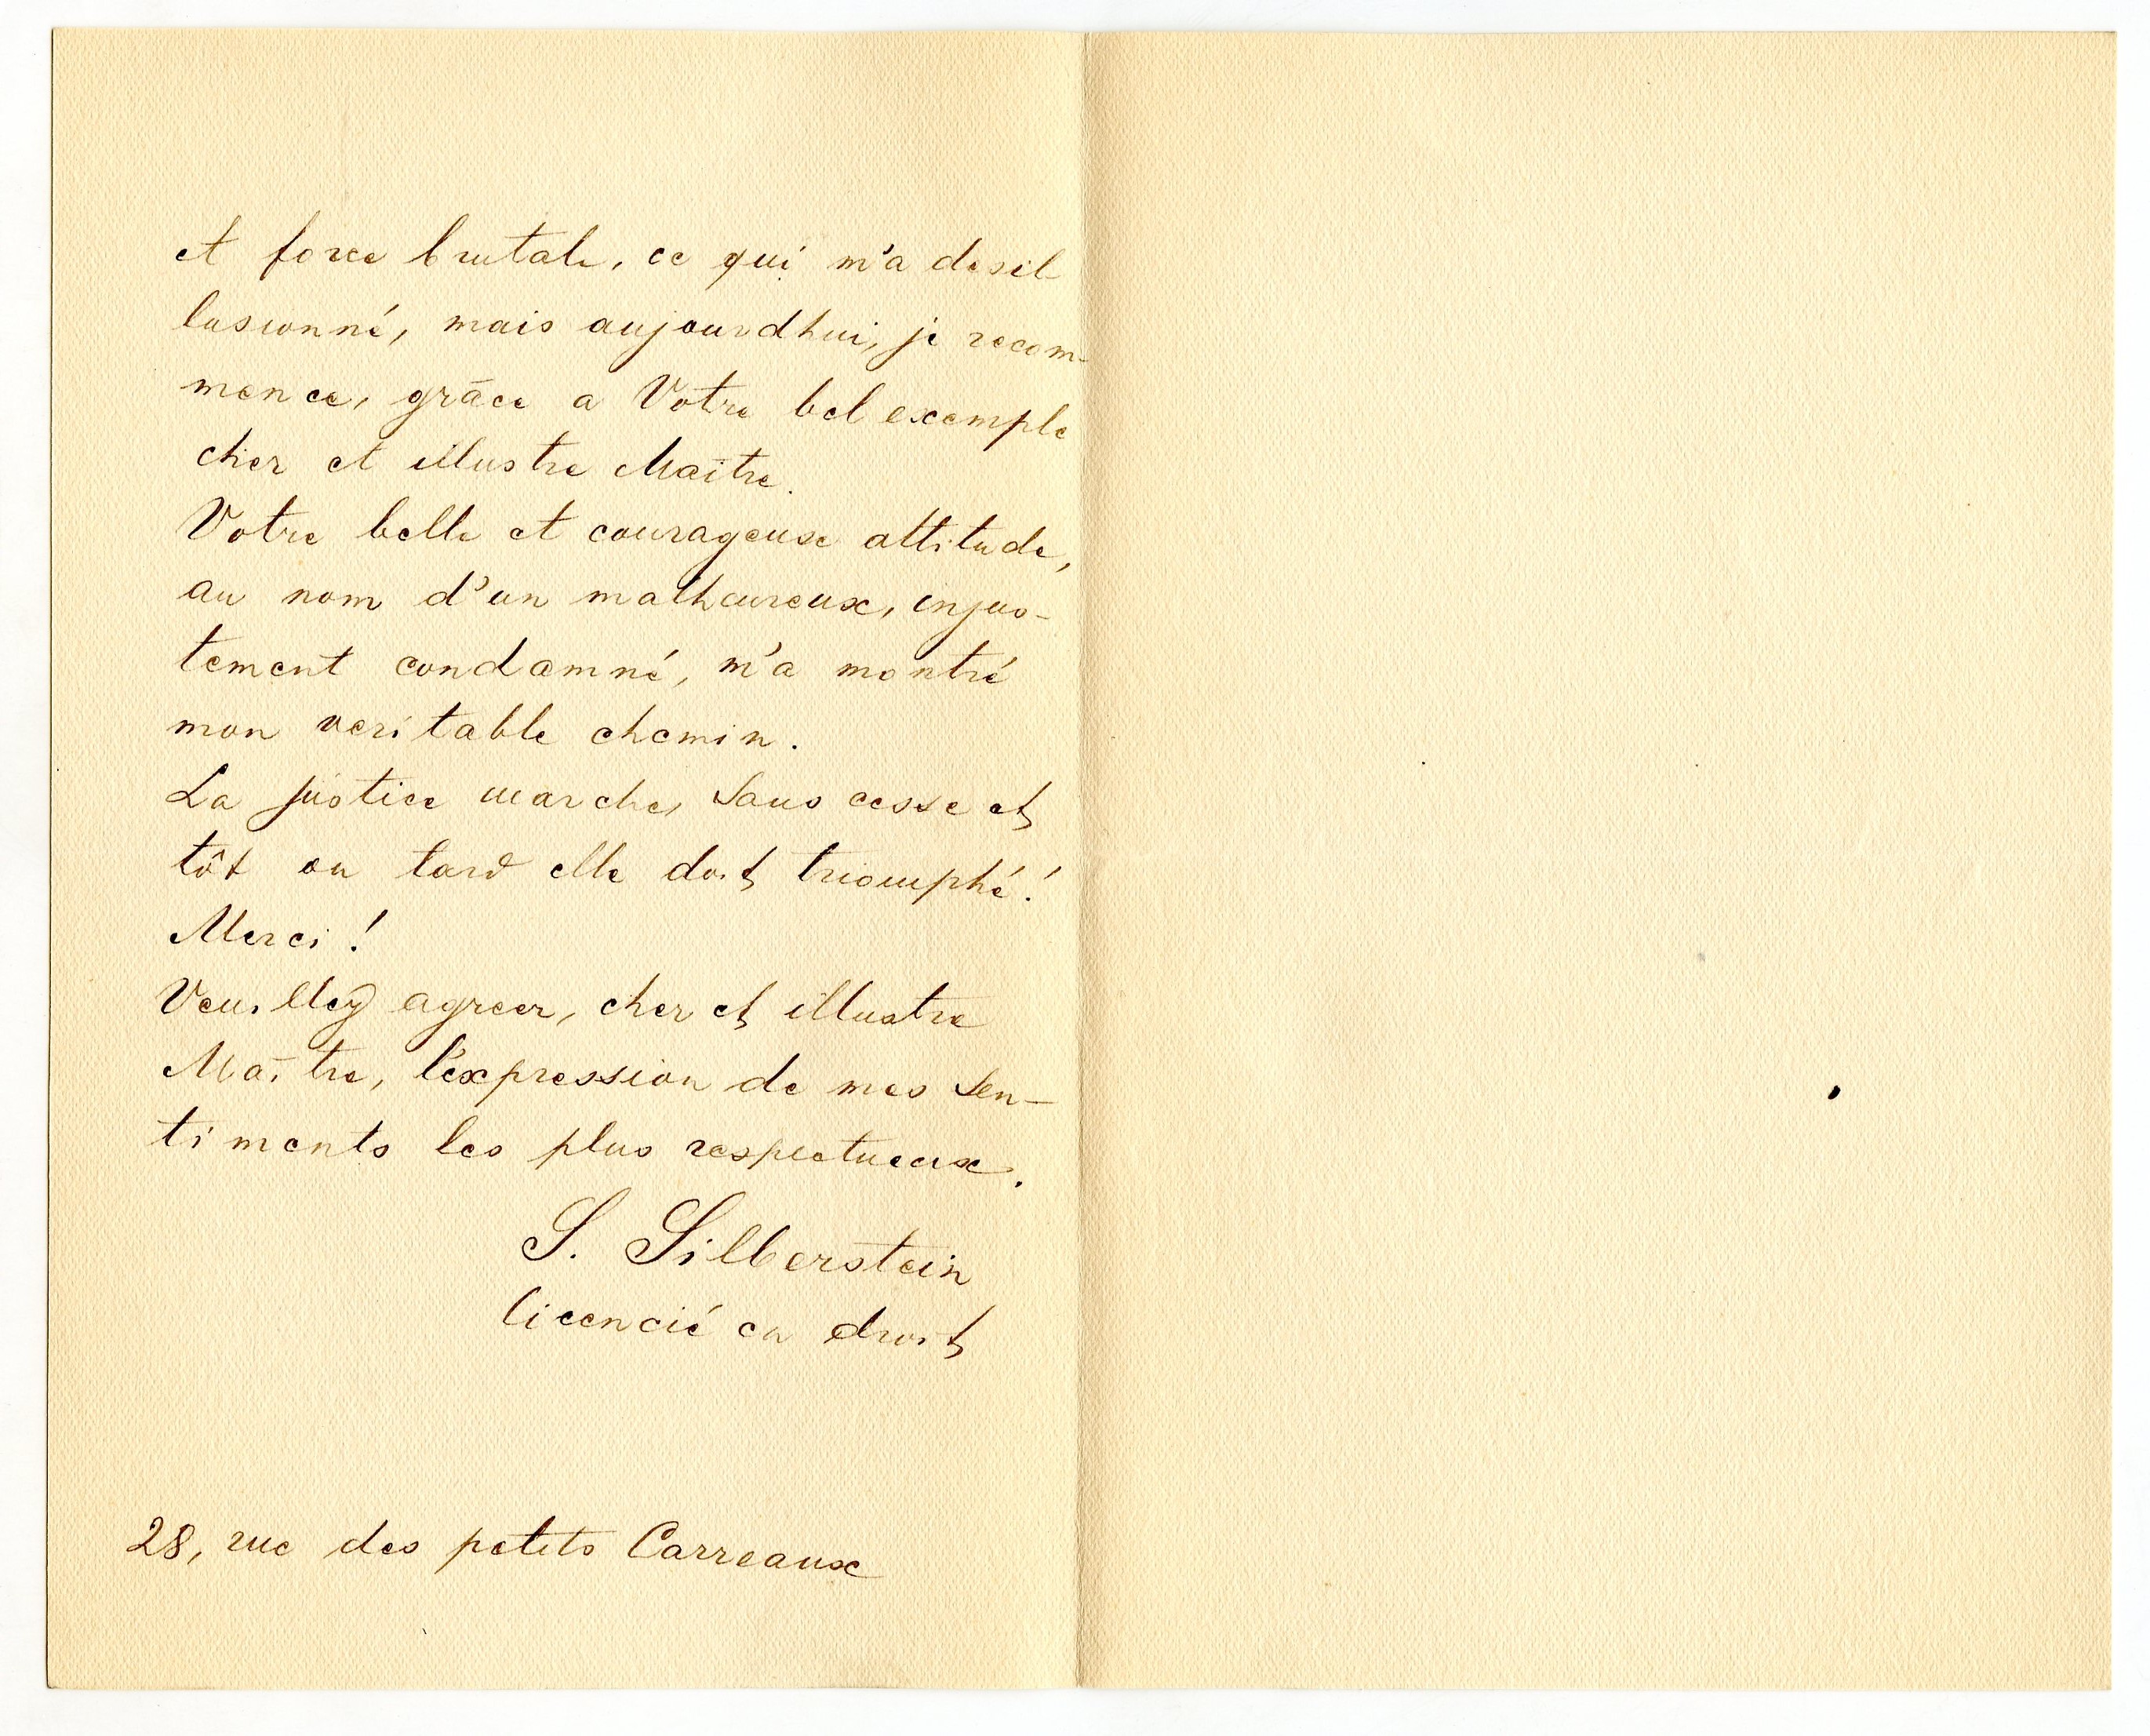 et force brutale, ce qui m'a desil-
lusionné, mais aujourdhui, je recom-
mence, grâce a Votre bel exemple
cher et illustre Maître.
Votre belle et courageuse attitude,
au nom d'un malheureux, injus-
tement condamné, m'a montré
mon veritable chemin.
La justice marche, sans cesse et
tôt ou tard elle doit triomphé!
Merci!
Veuillez agreer, cher et illustre
Maître, l'expression de mes sen-
timents les plus respectueux.
S. Silberstein
licencié en droit
28, rue des petits Carreaux